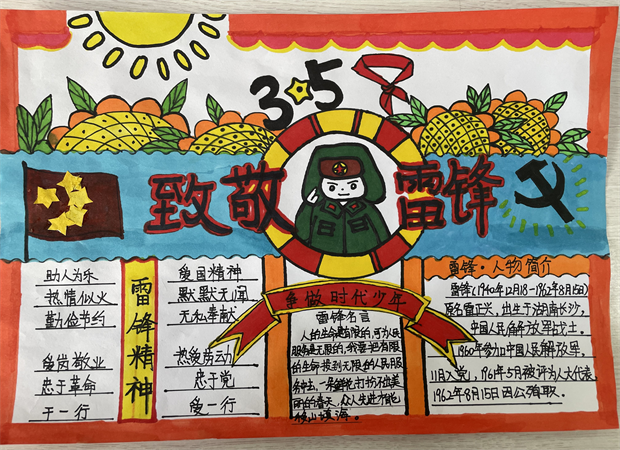 3 5
致敬 雷锋
助人为乐
热情似火
勤俭节约
爱岗敬业
忠于革命
干一行
雷锋精神
爱国精神
默默无闻
无私奉献
热爱劳动
忠于党
爱一行
争做时代少年
雷锋名言
人的生命是有限的,可为人民
服务是无限的,我要把有限
的生命投到无限的人民服
务中去。一朵鲜花打扮不出美
丽的春天,众人先进才能
移山填海。
雷锋·人物简介
雷锋(1940年12月18-1962年8月15日)
原名雷正兴,出生于湖南长沙,
中国人民解放军战士。
1960年参加中国人民解放军,
11月入党,1961年5月被评为人大代表
1962年8月15日因公殉职。